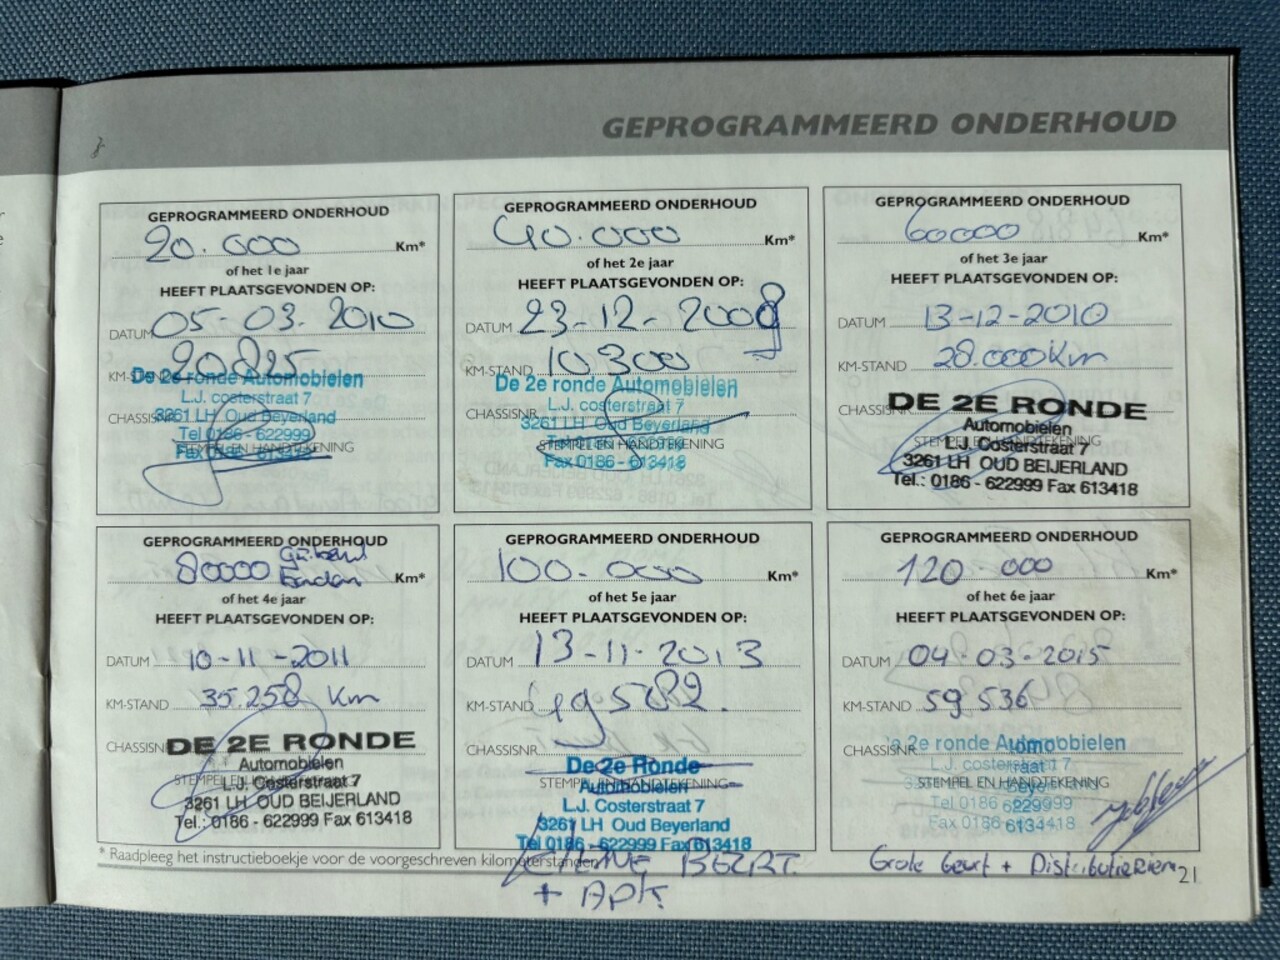 GEPROGRAMMEERD ONDERHOUD
GEPROGRAMMEERD ONDERHOUD
20.000 Km*
of het 1e jaar
HEEFT PLAATSGEVONDEN OP:
DATUM 05-03-2010
KM-STAND 20825
De 2e ronde Automobielen
L.J. costerstraat 7
CHASSISNR.
3261 LH Oud Beyerland
Tel 0186 - 622999
STEMPEL EN HANDTEKENING
GEPROGRAMMEERD ONDERHOUD
40.000 Km*
of het 2e jaar
HEEFT PLAATSGEVONDEN OP:
DATUM 23-12-2009
KM-STAND 10.300
De 2e ronde Automobielen
L.J. costerstraat 7
CHASSISNR.
3261 LH Oud Beyerland
STEMPEL EN HANDTEKENING
Fax 0186 - 613418
GEPROGRAMMEERD ONDERHOUD
60000 Km*
of het 3e jaar
HEEFT PLAATSGEVONDEN OP:
DATUM 13-12-2010
KM-STAND 28.000 Km
CHASSISNR.
DE 2E RONDE
Automobielen
STEMPEL EN HANDTEKENING
L.J. Costerstraat 7
3261 LH OUD BEIJERLAND
Tel.: 0186 - 622999 Fax 613418
GEPROGRAMMEERD ONDERHOUD
80000 Km*
of het 4e jaar
HEEFT PLAATSGEVONDEN OP:
DATUM 10-11-2011
KM-STAND 35.258 Km
CHASSISNR.
DE 2E RONDE
Automobielen
STEMPEL EN HANDTEKENING
L.J. Costerstraat 7
3261 LH OUD BEIJERLAND
Tel.: 0186 - 622999 Fax 613418
GEPROGRAMMEERD ONDERHOUD
100.000 Km*
of het 5e jaar
HEEFT PLAATSGEVONDEN OP:
DATUM 13-11-2013
KM-STAND 49582.
CHASSISNR.
De 2e Ronde
STEMPEL EN HANDTEKENING
Automobielen
L.J. Costerstraat 7
3261 LH Oud Beyerland
Tel 0186 - 622999 Fax 613418
BEURT
+ APK
GEPROGRAMMEERD ONDERHOUD
120.000 Km*
of het 6e jaar
HEEFT PLAATSGEVONDEN OP:
DATUM 04-03-2015
KM-STAND 59536
CHASSISNR.
2e ronde Automobielen
STEMPEL EN HANDTEKENING
Tel 0186 - 622999
Fax 0186 - 613418
Grote beurt + Distributieriem
* Raadpleeg het instructieboekje voor de voorgeschreven kilometerstanden
21